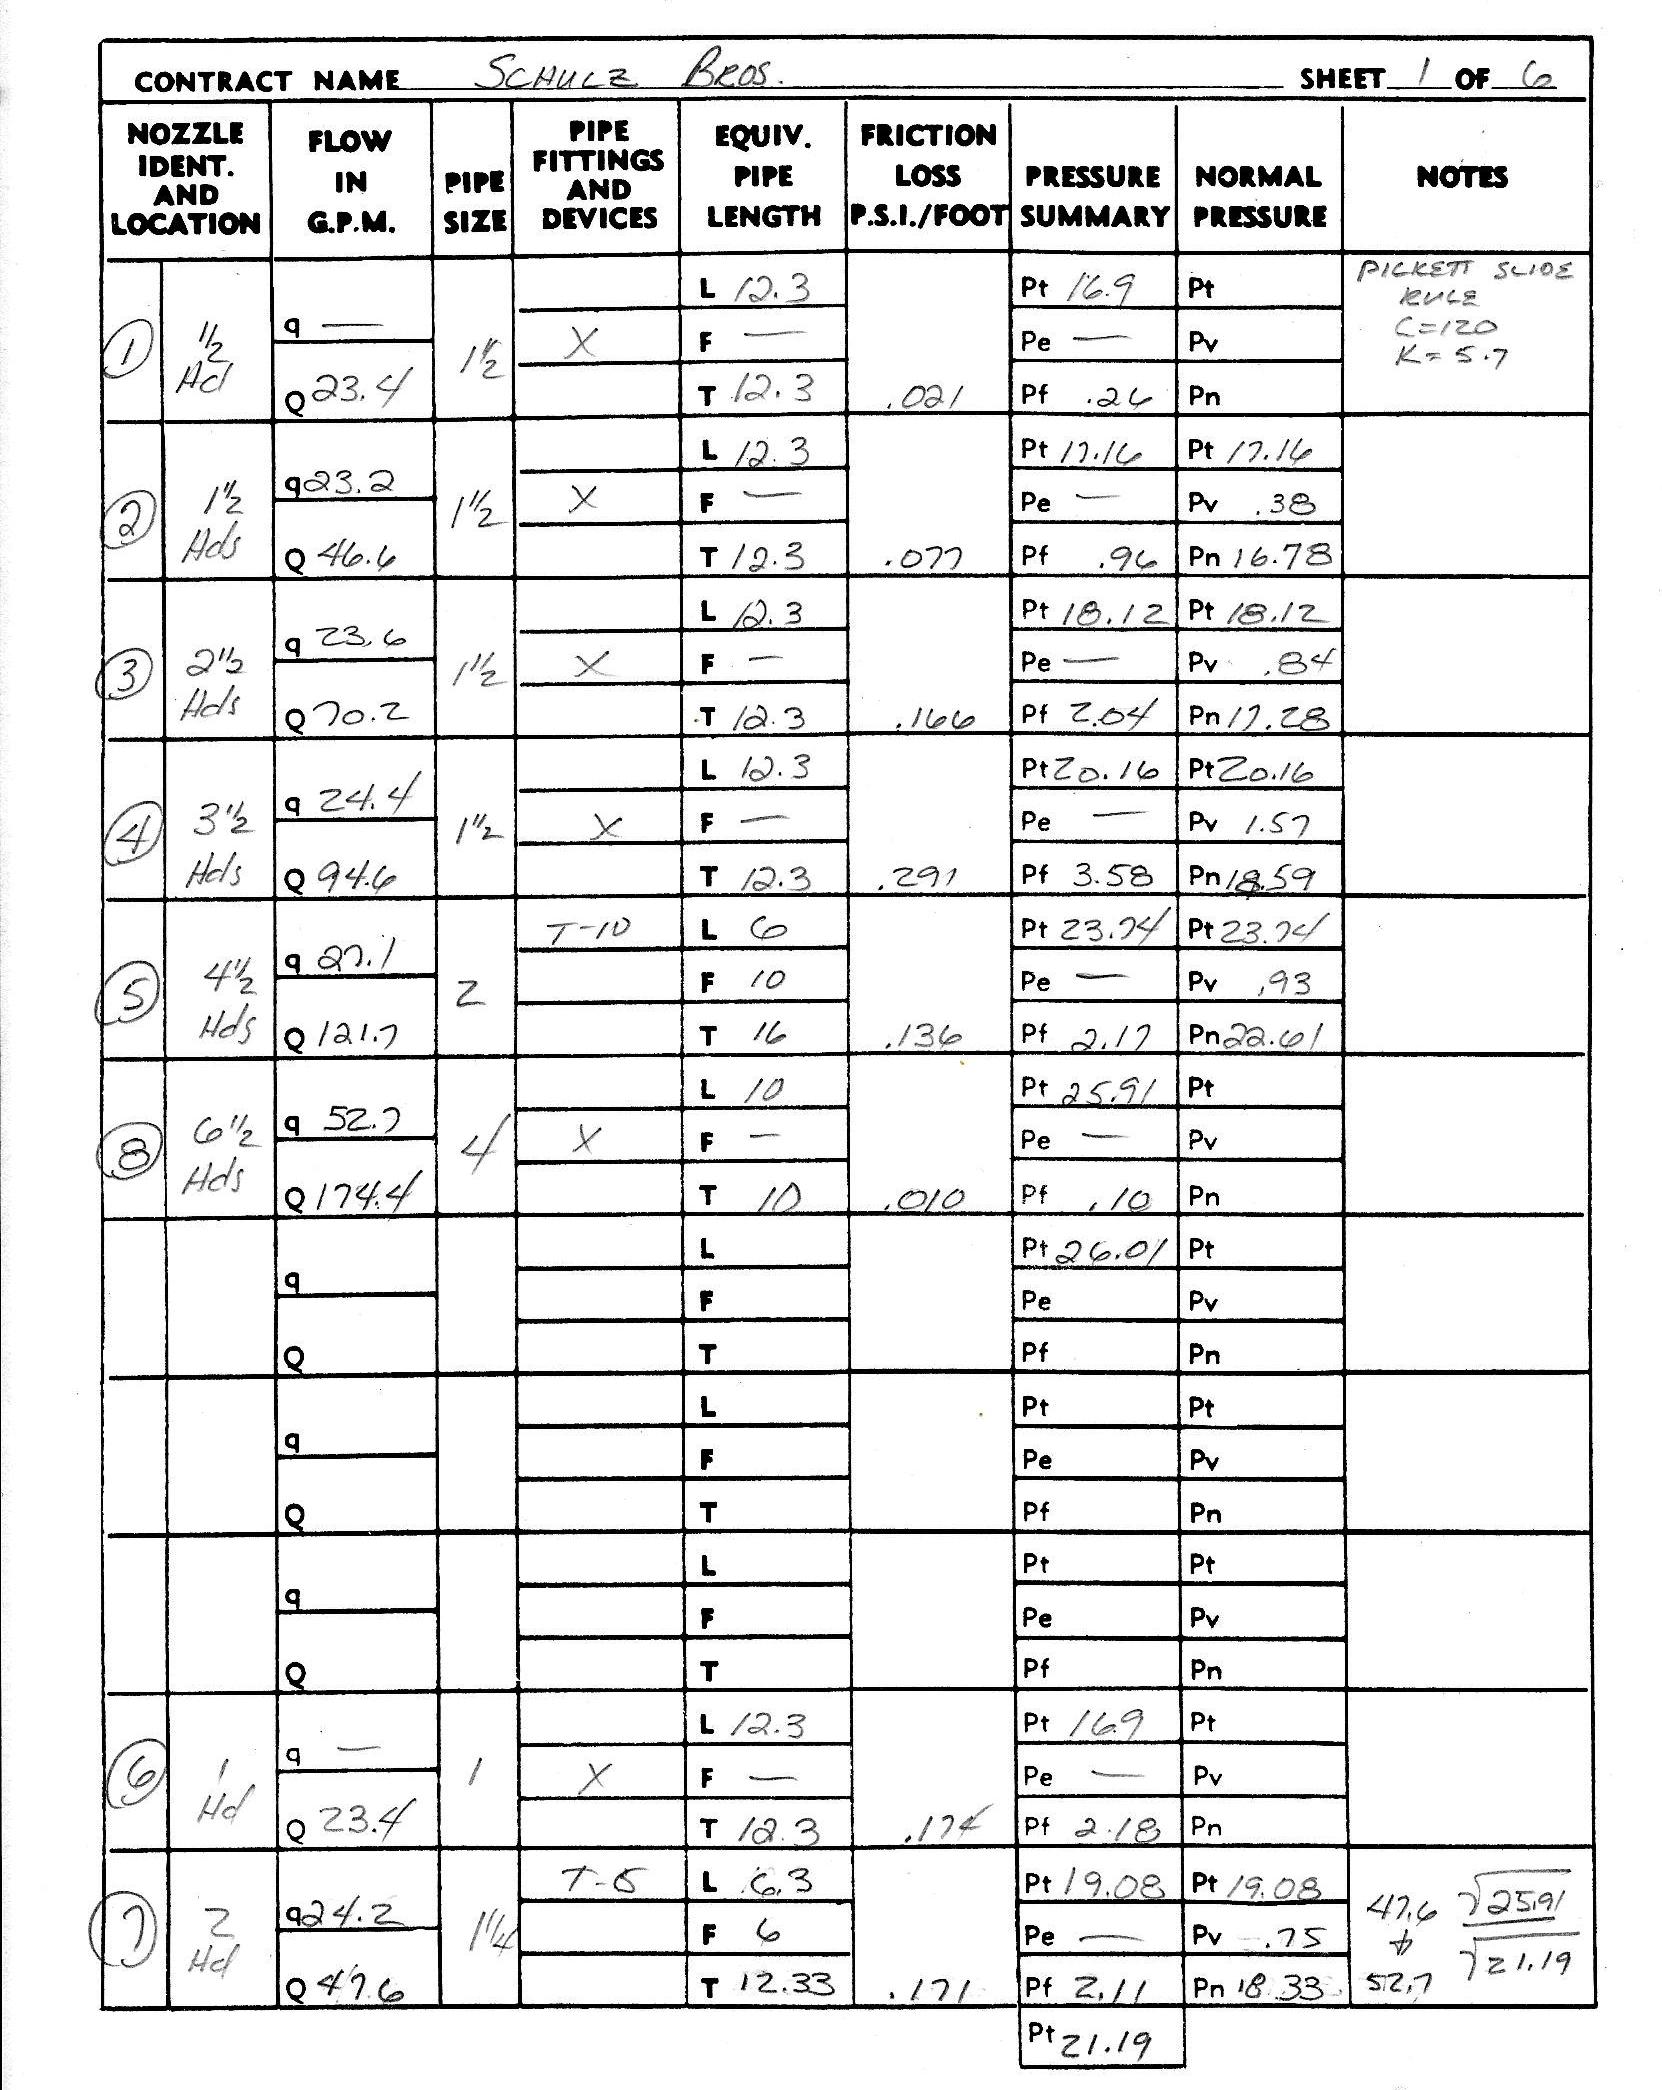 CONTRACT NAME SCHULZ BROS. SHEET 1 OF 6
NOZZLE IDENT. AND LOCATION
FLOW IN G.P.M.
PIPE SIZE
PIPE FITTINGS AND DEVICES
EQUIV. PIPE LENGTH
FRICTION LOSS P.S.I./FOOT
PRESSURE SUMMARY
NORMAL PRESSURE
NOTES
1 1/2 Hd q — Q 23.4 1 1/2 X L 12.3 F — T 12.3 .021 Pt 16.9 Pe — Pf .26 Pt Pv Pn
PICKETT SLIDE
RULE
C=120
K= 5.7
2 1 1/2 Hds q 23.2 Q 46.6 1 1/2 X L 12.3 F — T 12.3 .077 Pt 17.16 Pe — Pf .96 Pt 17.16 Pv .38 Pn 16.78
3 2 1/2 Hds q 23.6 Q 70.2 1 1/2 X L 12.3 F — T 12.3 .166 Pt 18.12 Pe — Pf 2.04 Pt 18.12 Pv .84 Pn 17.28
4 3 1/2 Hds q 24.4 Q 94.6 1 1/2 X L 12.3 F — T 12.3 .291 Pt 20.16 Pe — Pf 3.58 Pt 20.16 Pv 1.57 Pn 18.59
5 4 1/2 Hds q 27.1 Q 121.7 2 T-10 L 6 F 10 T 16 .136 Pt 23.74 Pe — Pf 2.17 Pt 23.74 Pv .93 Pn 22.61
8 6 1/2 Hds q 52.7 Q 174.4 4 X L 10 F — T 10 .010 Pt 25.91 Pe — Pf .10 Pt Pv Pn
q Q L F T Pt 26.01 Pe Pf Pt Pv Pn
q Q L F T Pt Pe Pf Pt Pv Pn
q Q L F T Pt Pe Pf Pt Pv Pn
6 1 Hd q — Q 23.4 1 X L 12.3 F — T 12.3 .174 Pt 16.9 Pe — Pf 2.18 Pt Pv Pn
7 2 Hd q 24.2 Q 47.6 1 1/4 L 6.3 F 6 T 12.33 .171 Pt 19.08 Pe — Pf 2.11 Pt 19.08 Pv .75 Pn 18.33
47.6 √25.91
52.7 √21.19
Pt 21.19